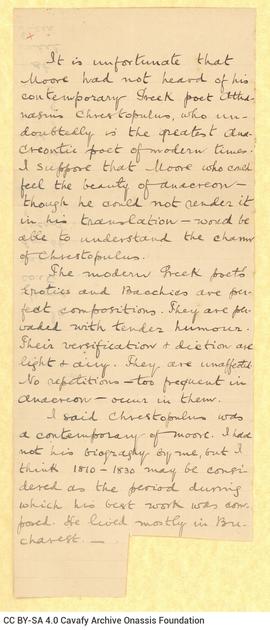 It is unfortunate that
Moore had not heard of his
contemporary Greek poet Atha-
nasius Christopulus, who un-
doubtedly is the greatest ana-
creontic poet of modern times.
I suppose that Moore who could
feel the beauty of anacreon—
though he could not render it
in his translation — would be
able to understand the charm
of Christopulus.
The modern Greek poet's
Erotics and Bacchics are per-
fect compositions. They are per-
vaded with tender humour.
Their versification & diction are
light & airy. They are unaffected.
No repetitions — too frequent in
anacreon — occur in them.
I said Christopulus was
a contemporary of Moore. I have
not his biography by me, but I
think 1810 - 1830 may be consi-
dered as the period during
which his best work was com-
posed. He lived mostly in Bu-
charest. —
CC BY-SA 4.0 Cavafy Archive Onassis Foundation